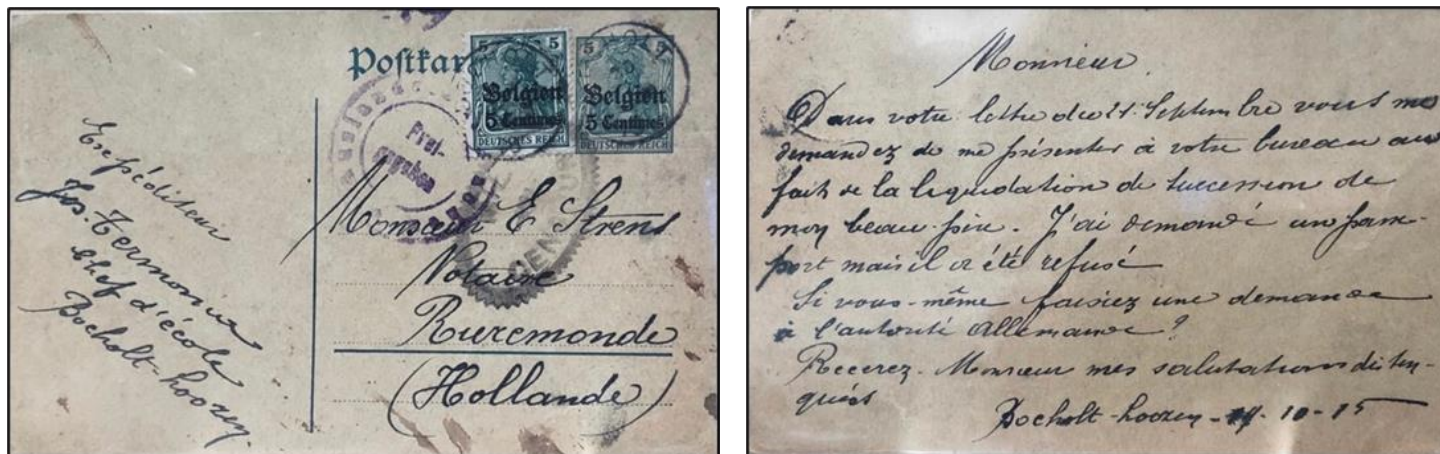 Postkar
5 5
Belgien
5 Centimes
DEUTSCHES REICH
5 5
Belgien
5 Centimes
DEUTSCHES REICH
Frei-
gegeben
Expéditeur
Jos. Termonia
Chef d'école
Bocholt-Loozen.
Monsieur E Strens
Notaire
Ruremonde
(Hollande)
Monsieur
Dans votre lettre du 21 Septembre vous me
demandez de me présenter à votre bureau au
fait de la liquidation de succession de
mon beau-père. J'ai demandé un passe-
port mais il a été refusé
Si vous-même faisiez une demande
à l'autorité Allemande?
Recevez Monsieur mes salutations distin-
guées
Bocholt-Loozen - 10-15